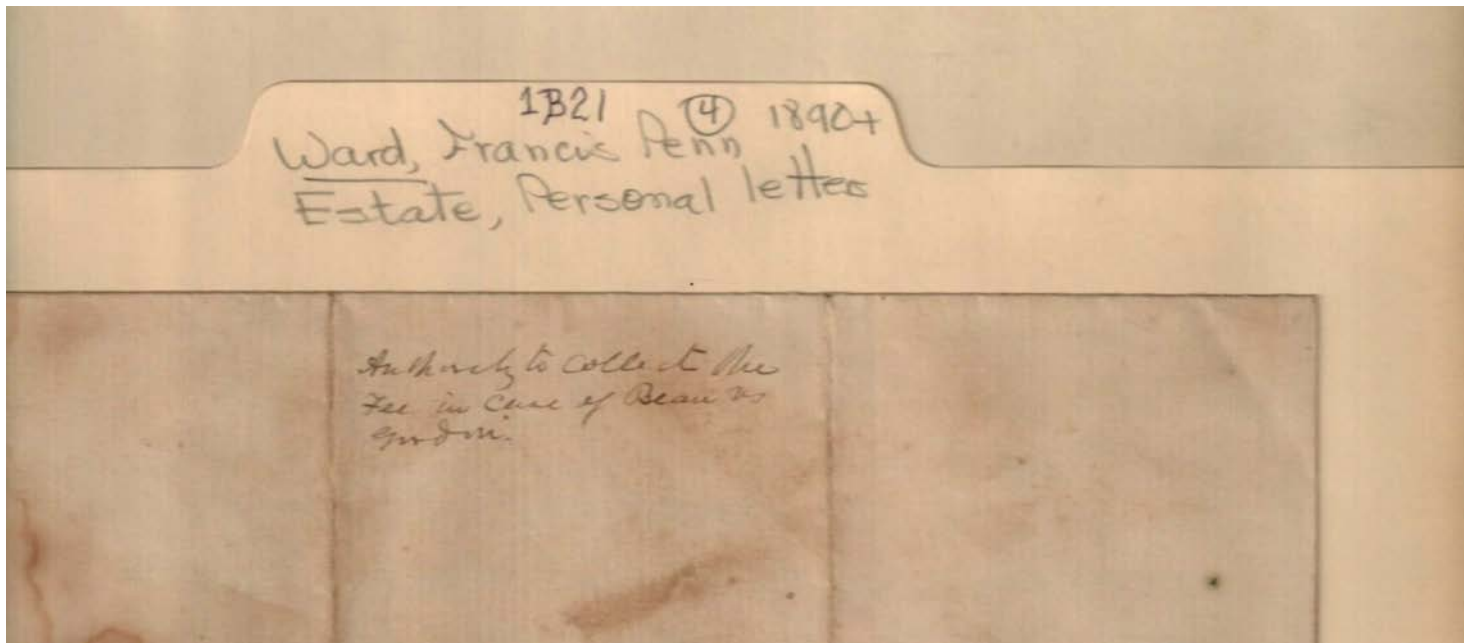 1B21 4 1890+
Ward, Francis Penn
Estate, Personal letters
Authority to collect the
Fee in Case of Bean vs